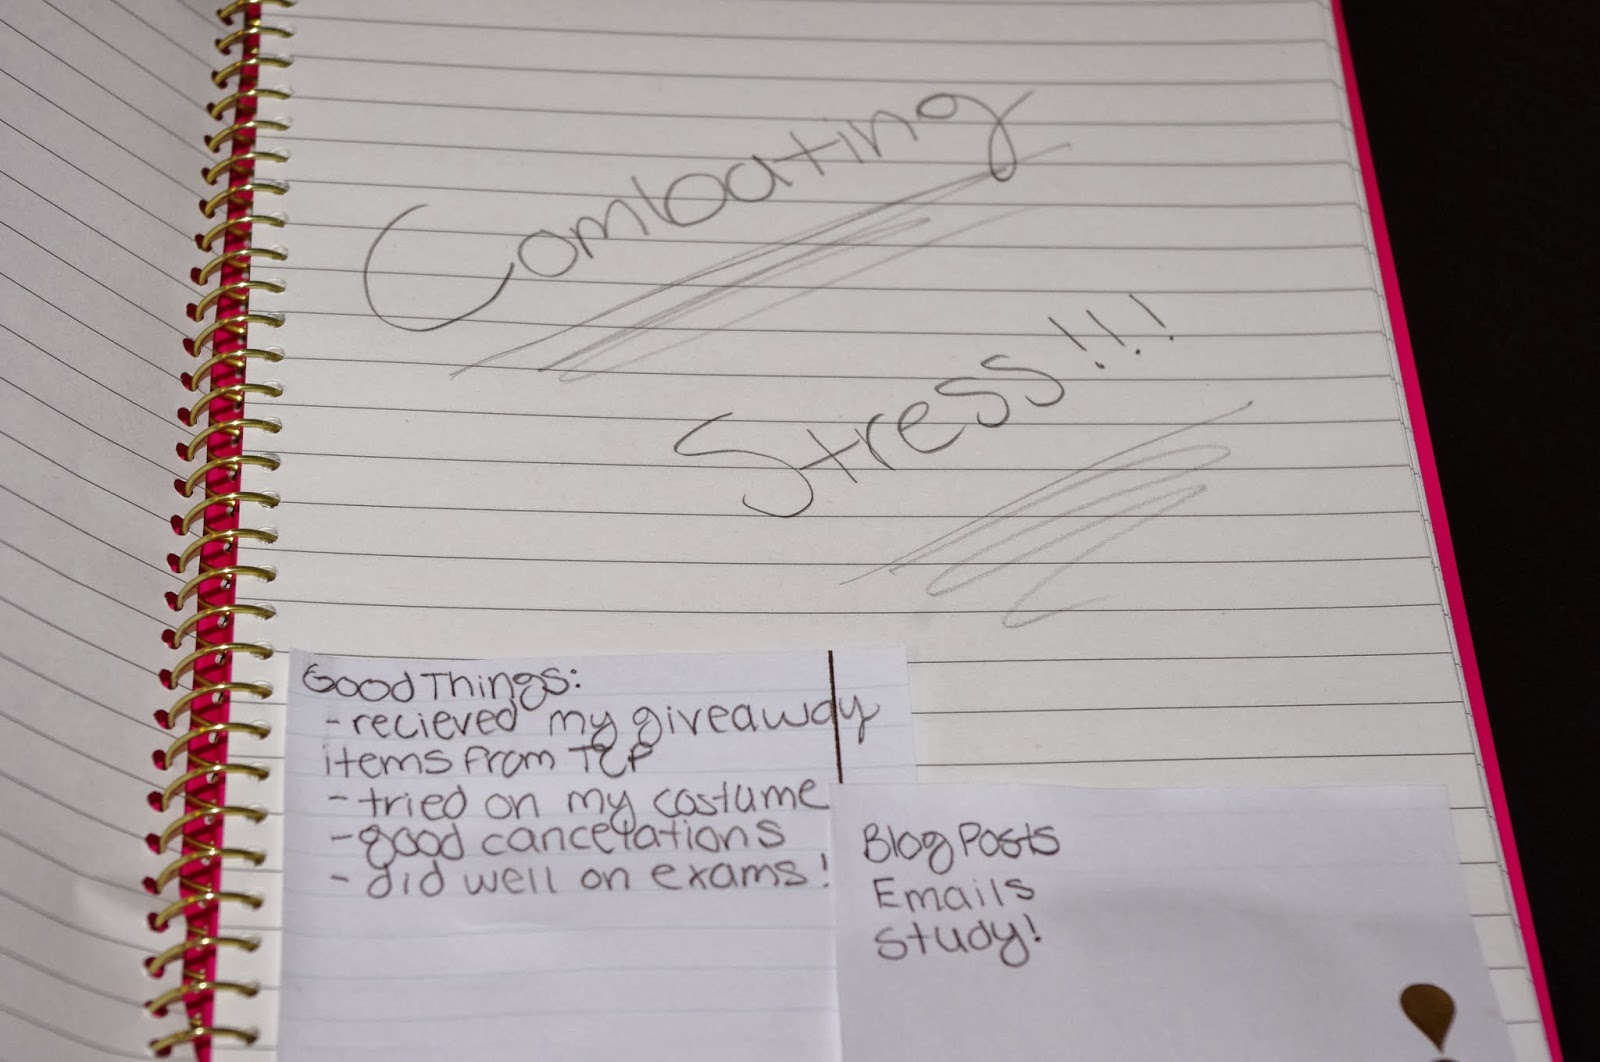 Combating
Stress!!!
Good Things:
- recieved my giveaway
items from TCP
- tried on my costume
- good cancelations
- did well on exams!
Blog Posts
Emails
Study!